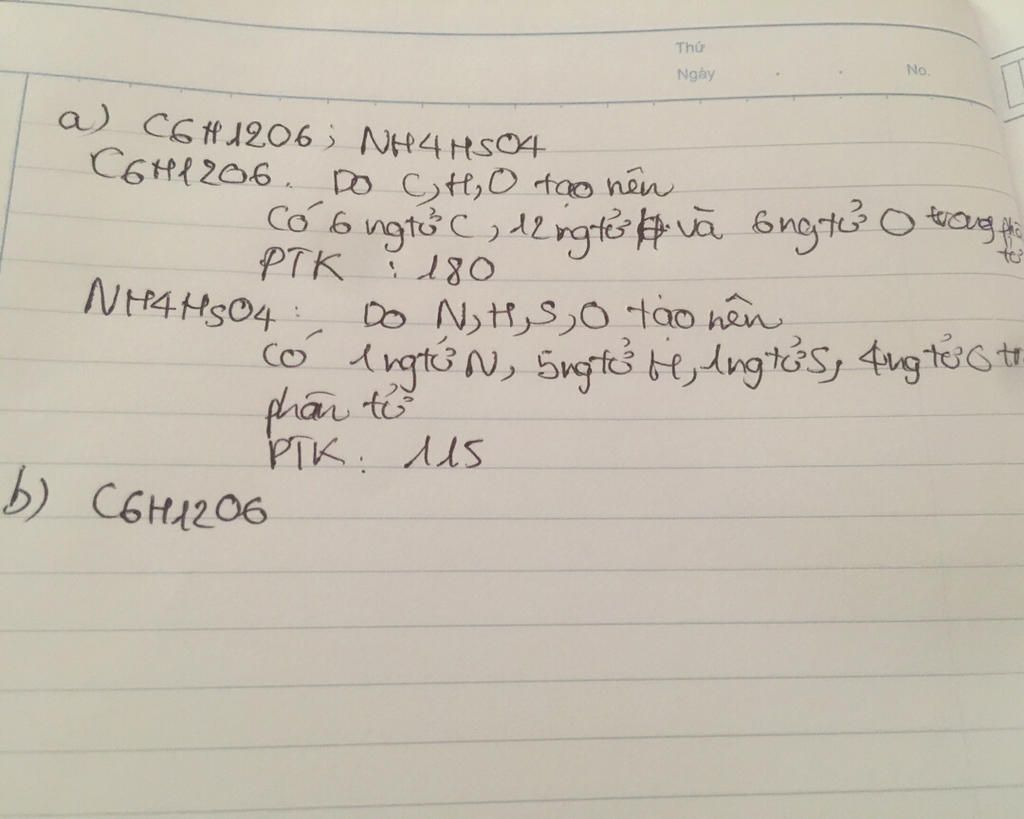 Thứ
Ngày . . No.
a) C6H12O6; NH4HSO4
C6H12O6. Do C,H,O tạo nên
Có 6 ngtử C, 12 ngtử H và 6 ngtử O trong phân
tử
PTK : 180
NH4HSO4: Do N,H,S,O tạo nên
Có 1 ngtử N, 5 ngtử H, 1 ngtử S, 4 ngtử O tr
phân tử
PTK: 115
b) C6H12O6